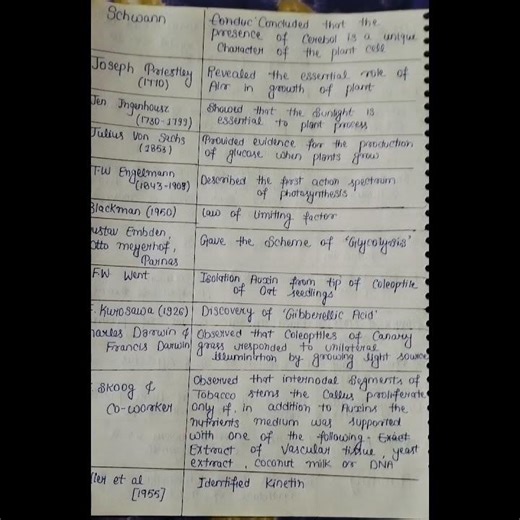 Schwann
Conduc Concluded that the
presence of Cerebol is a unique
Character of the plant cell
Joseph Priestley
(1770)
Revealed the essential role of
Air in growth of plant
Jen Ingenhousz
(1730-1799)
Showed that the Sunlight is
essential to plant process
Julius Von Sachs
(1853)
Provided evidence for the production
of glucose when plants grow
T.W Engelmann
(1843-1909)
Described the first action spectrum
of photosynthesis
Blackman (1950)
Law of limiting factor
ustav Embden,
otto meyerhof,
Parnas
Gave the Scheme of 'Glycolysis'
F.W Went
Isolation Auxin from tip of coleoptile
of Oat seedlings
. Kurosawa (1926)
Discovery of 'Gibberellic Acid'
harles Darwin &
Francis Darwin
Observed that Coleoptiles of Canary
grass responded to unilateral
illumination by growing light source
. Skoog &
Co-woorker
Observed that internodal Segments of
Tobacco stems the Callus proliferate
only if, in addition to Auxins the
nutrients medium was supported
with one of the following - Exact
Extract of vascular tissue, yeast
extract, coconut milk or DNA
ller et al
[1955]
Identified Kinetin